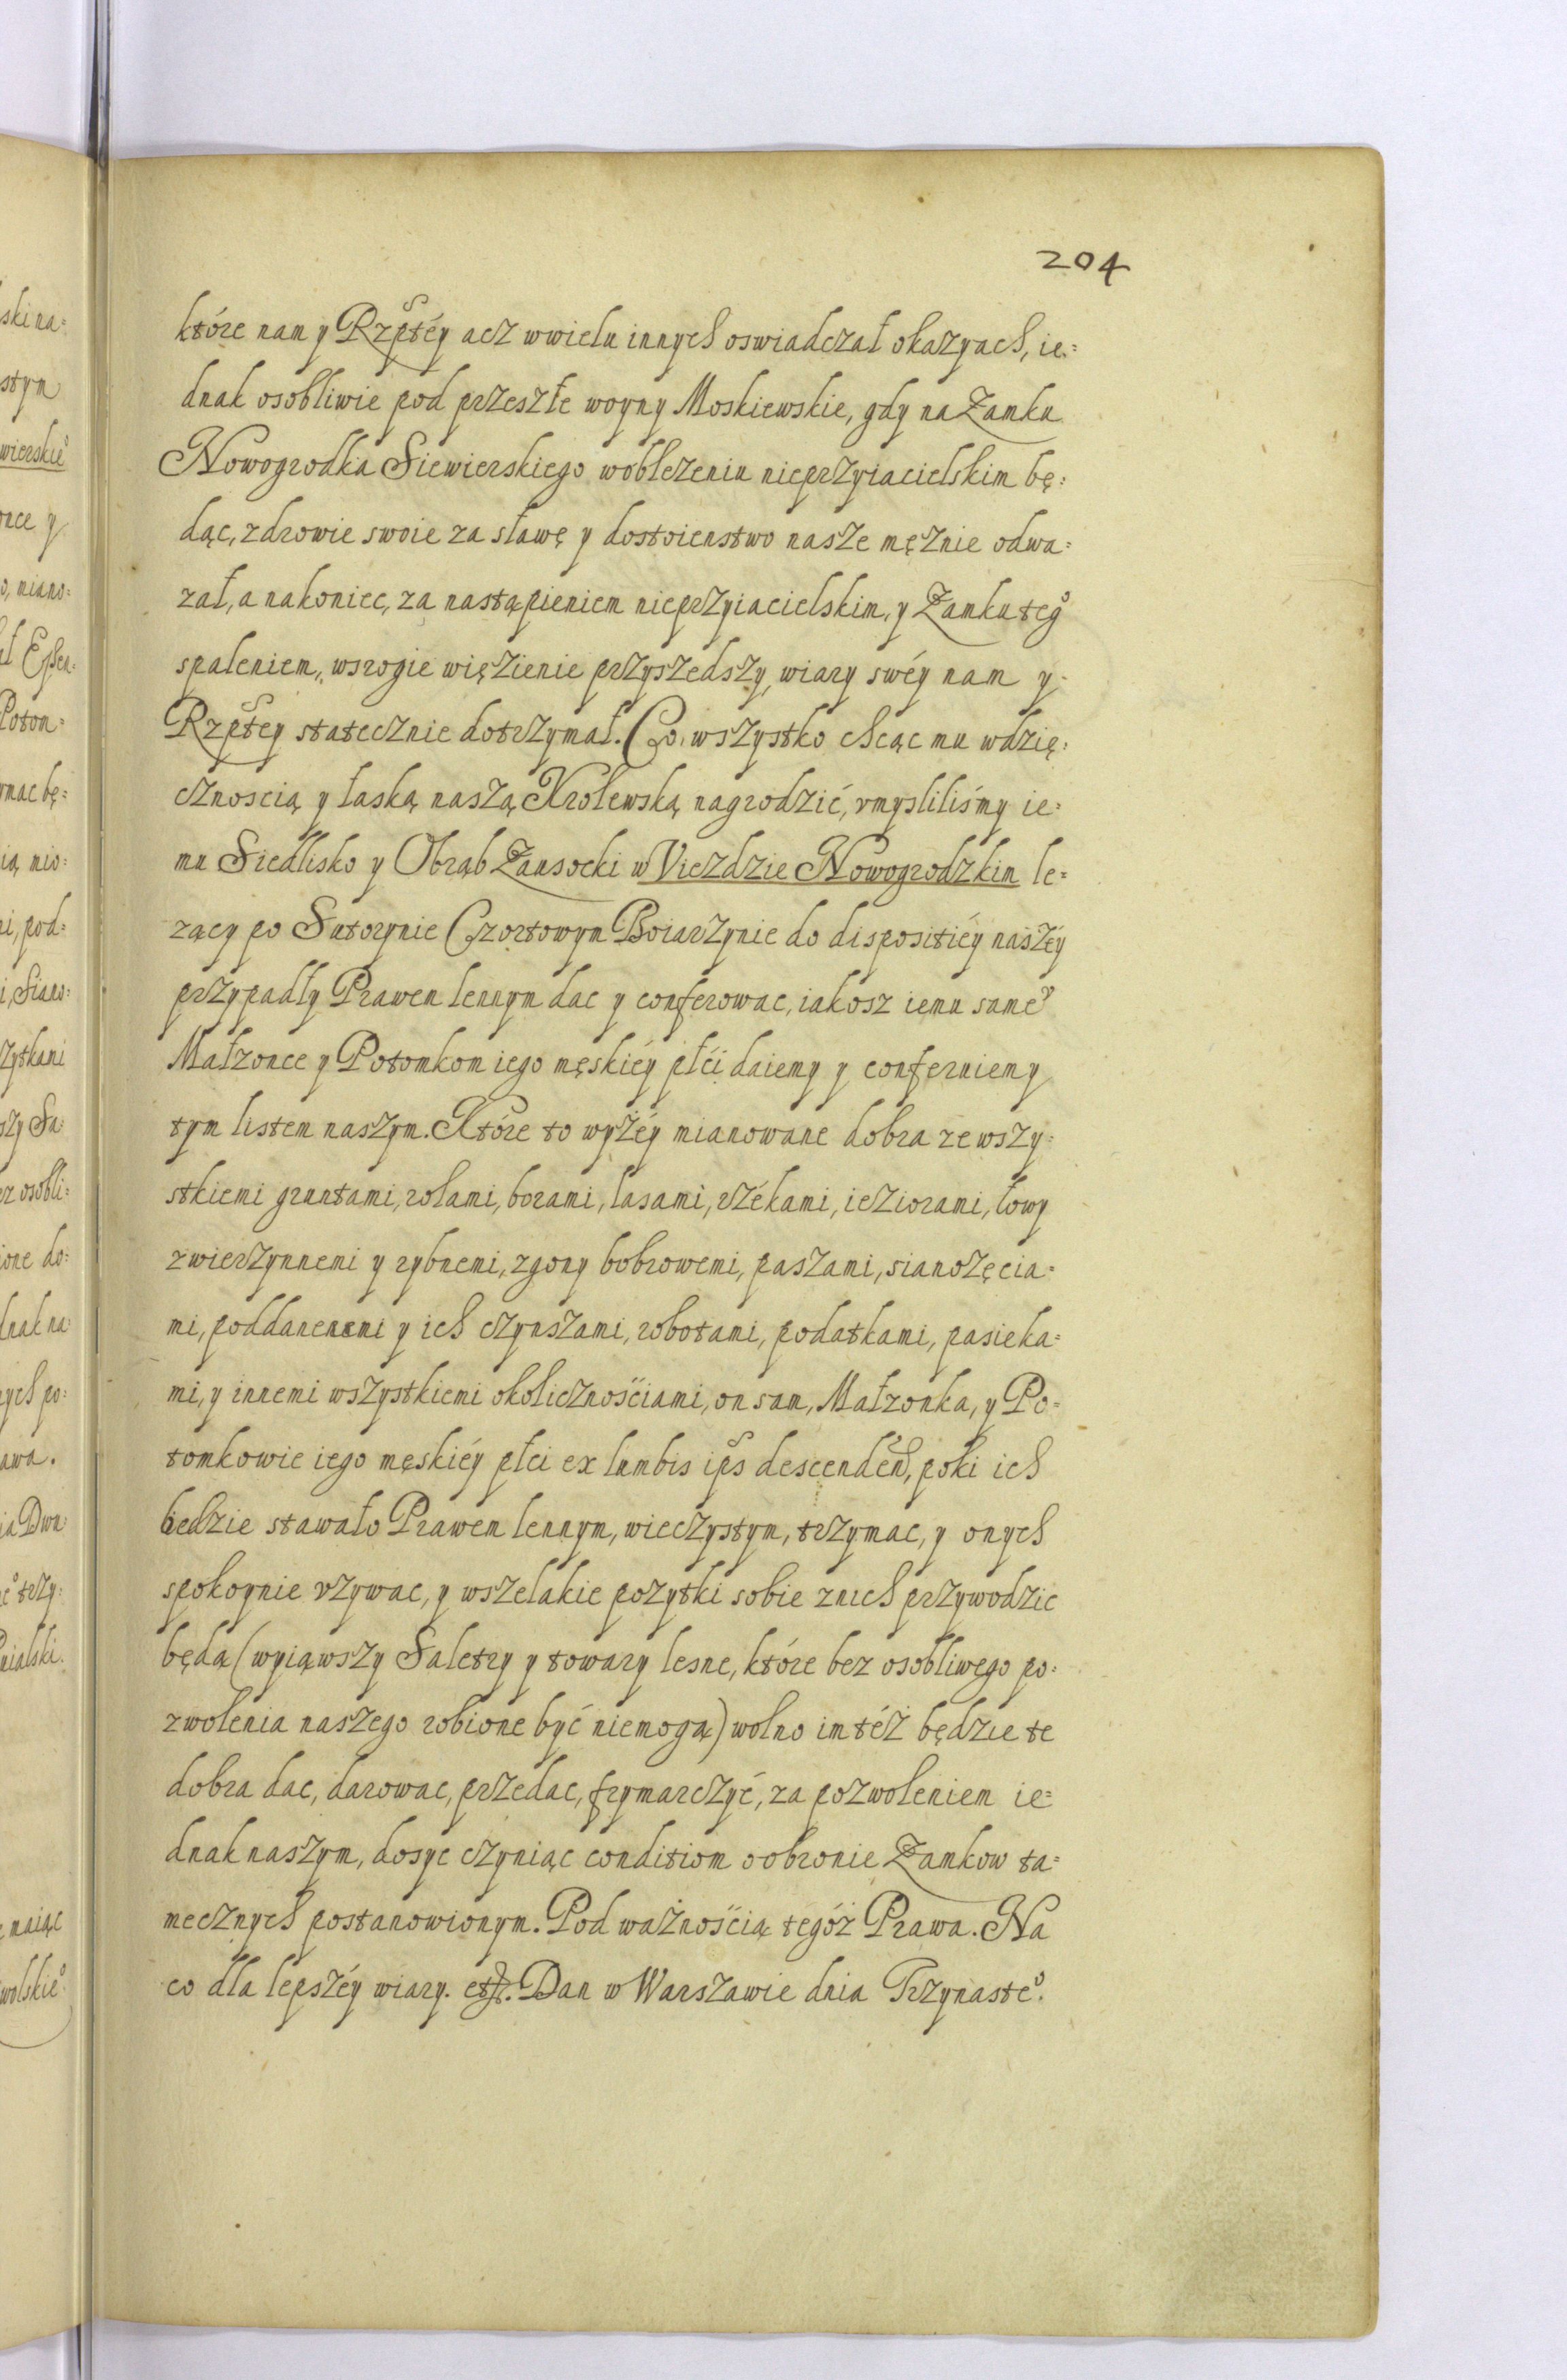 204
które nam y Rzptéy acz wwielu innych oswiadczał okazyach, ie=
dnak osobliwie pod przeszłe woyny Moskiewskie, gdy na Zamku
Nowogrodka Siewierskiego wobleżeniu nieprzyiacielskim bę=
dąc, zdrowie swoie za sławę y dostoienstwo nasze mężnie odwa=
zał, a nakoniec, za nastąpieniem nieprzyiacielskim, y Zamku teg°
spaleniem, wsrogie więzienie przyszedszy, wiary swéy nam y
Rzptey statecznie dotrzymał. Co, wszystko chcąc mu wdzię=
cznoscią y łaską naszą Krolewską nagrodzić, vmysliliśmy ie=
mu Siedlisko y Obrąb Zausocki w Vieździe Nowogrodzkim le=
zący po Sutorynie Czortowym Boiarzynie do dispositiéy naszéy
przypadły Prawem lennym dac y conferowac, iakosz iemu same°
Małzonce y Potomkom iego męskiéy płći daiemy y conferuiemy
tym listem naszym. Które to wyżéy mianowane dobra ze wszy=
stkiemi gruntami, rolami, borami, lasami, rzékami, ieziorami, łowy
zwierzynnemi y rybnemi, zgony bobrowemi, paszami, sianożęcia=
mi, poddanemi y ich czynszami, robotami, podatkami, pasieka=
mi, y innemi wszystkiemi okolicznościami, on sam, Małzonka, y Po=
tomkowie iego męskiéy płci ex lumbis ips descenden, poki ich
bedzie stawało Prawem lennym, wieczystym, trzymac, y onych
spokoynie vzywac, y wszelakie pozytki sobie znich przywodzic
będą (wyiąwszy Saletry y towary lesne, które bez osobliwego po=
zwolenia naszego robione być niemogą) wolno im téż będzie te
dobra dac, darowac, przedac, frymarczyć, za pozwoleniem ie=
dnak naszym, dosyc czyniąc conditiom oobronie Zamkow ta=
mecznych postanowionym. Pod ważnością tegóż Prawa. Na
co dla lepszéy wiary. etc. Dan w Warszawie dnia Trzynaste°.